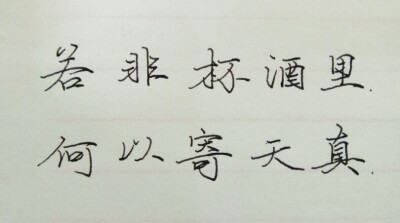 若非杯酒里.
何以寄天真.